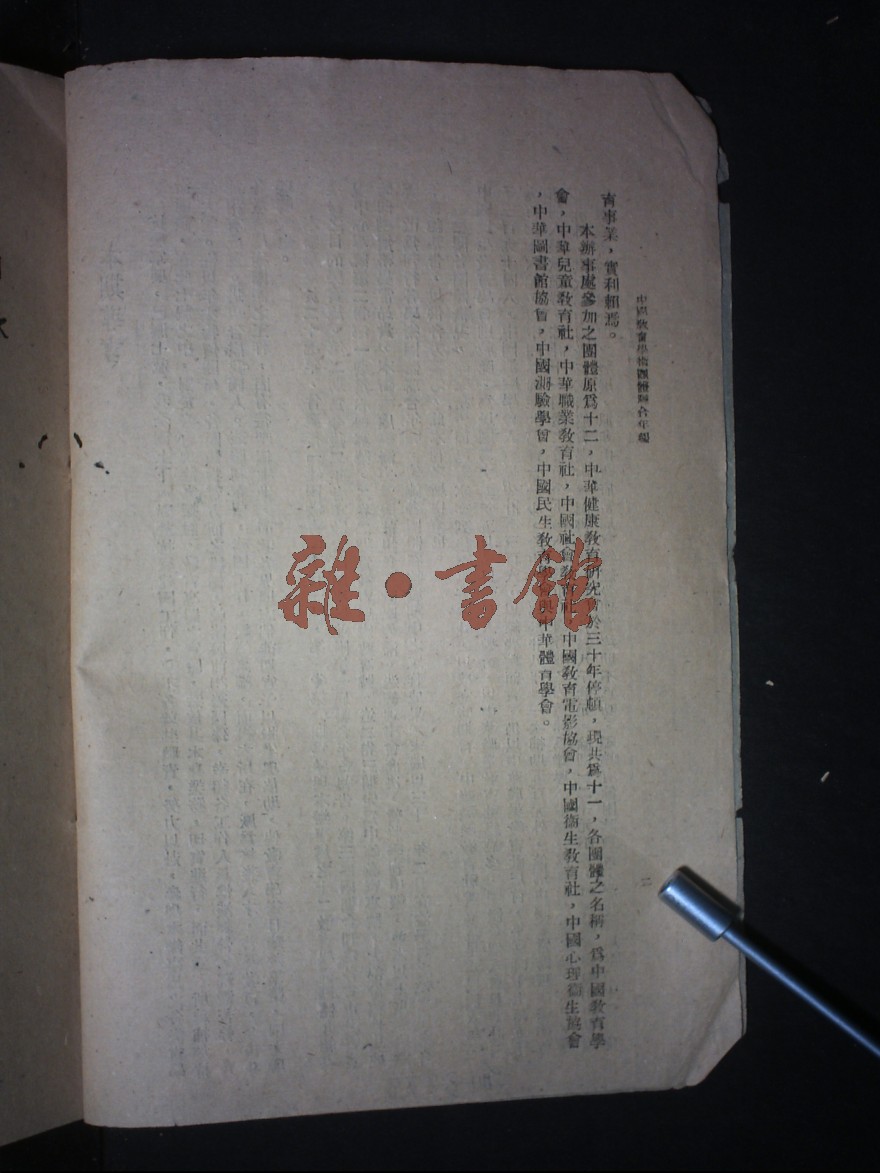 中國教育學術團體聯合年報
二
育事業，實利賴焉。
本辦事處參加之團體原爲十二，中華健康教育研究會於三十年停頓，現共爲十一，各團體之名稱，爲中國教育學
會，中華兒童教育社，中華職業教育社，中國社會教育社，中國教育電影協會，中國衞生教育社，中國心理衞生協會
，中華圖書館協會，中國測驗學會，中國民生教育學會與中華體育學會。
雜·書館